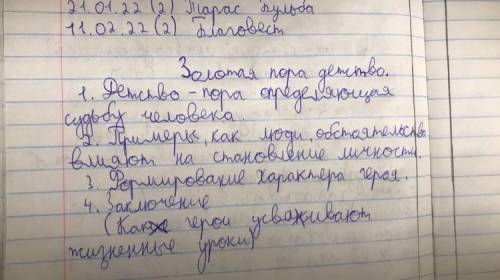 21.01.22 (2) Тарас Бульба
11.02.22 (2) Благовест
Золотая пора детство.
1. Детство - пора определяющая
судьбу человека.
2. Примеры, как люди, обстоятельства
влияют на становление личности.
3. Формирование характера героя.
4. Заключение
(Как герои усваивают
жизненные уроки)